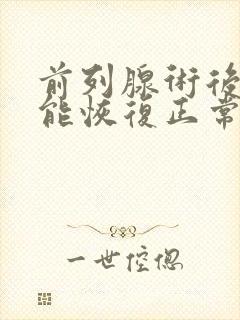 前列腺術後
能恢復正常
一世倥偬